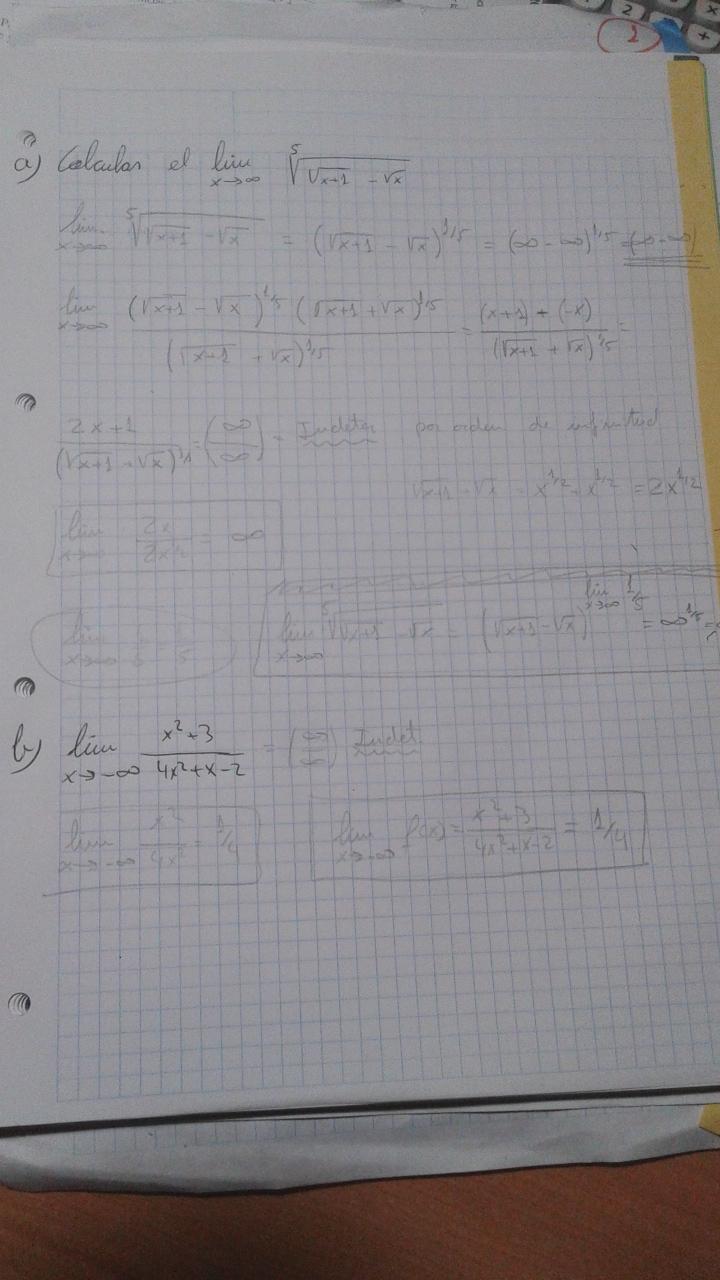 2
a) Calcular el lim x→∞ ⁵√(√x+1 - √x)
lim x→∞ ⁵√(√x+1 - √x) = (√x+1 - √x)^1/5 = (∞ - ∞)^1/5 = (∞ - ∞)
lim x→∞ (√x+1 - √x)^1/5 (√x+1 + √x)^1/5 / (√x+1 + √x)^1/5 = (x+1) + (-x) / (√x+1 + √x)^1/5 =
2x+1 / (√x+1 + √x) = (∞/∞) = Indeter por orden de infinitud
√x+1 - √x = x^1/2 + x^1/2 = 2x^1/2
lim x→∞ 2x / 2x^1/2 = ∞
lim x→∞ ⁵√(√x+1 - √x) = (√x+1 - √x)^lim x→∞ 1/5 = ∞^1/5 =
lim x→∞
b) lim x→-∞ x²+3 / 4x²+x-2 = (∞/∞) Indet
lim x→-∞ x²/4x² = 1/4 lim x→-∞ f(x) = x²+3 / 4x²+x-2 = 1/4